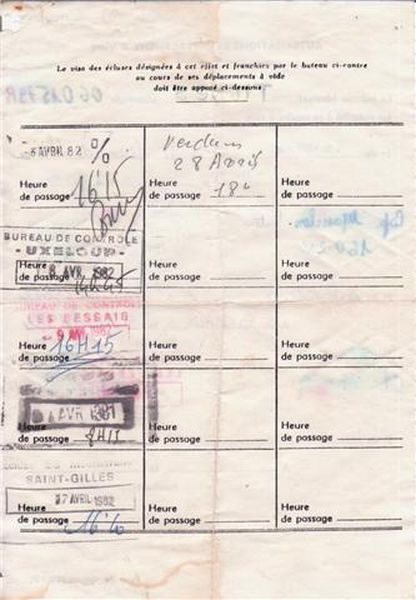 Le visa des écluses désignées à cet effet et franchies par le bateau ci-contre
au cours de ses déplacements à vide
doit être apposé ci-dessous
3 AVRIL 82 %
Heure
de passage 16h15
Verdun
28 Avril
Heure
de passage 18h
Heure
de passage
BUREAU DE CONTROLE
- UXELOUP -
8 AVR. 1982
Heure
de passage 14h45
Heure
de passage
Heure
de passage
BUREAU DE CONTROLE
LES BESSAIS
- 9 AVR. 1982
Heure
de passage 16H15
Heure
de passage
Heure
de passage
AVR 1981
Heure
de passage 8H15
Heure
de passage
Heure
de passage
SAINT-GILLES
17 AVRIL 1982
Heure
de passage
Heure
de passage
Heure
de passage